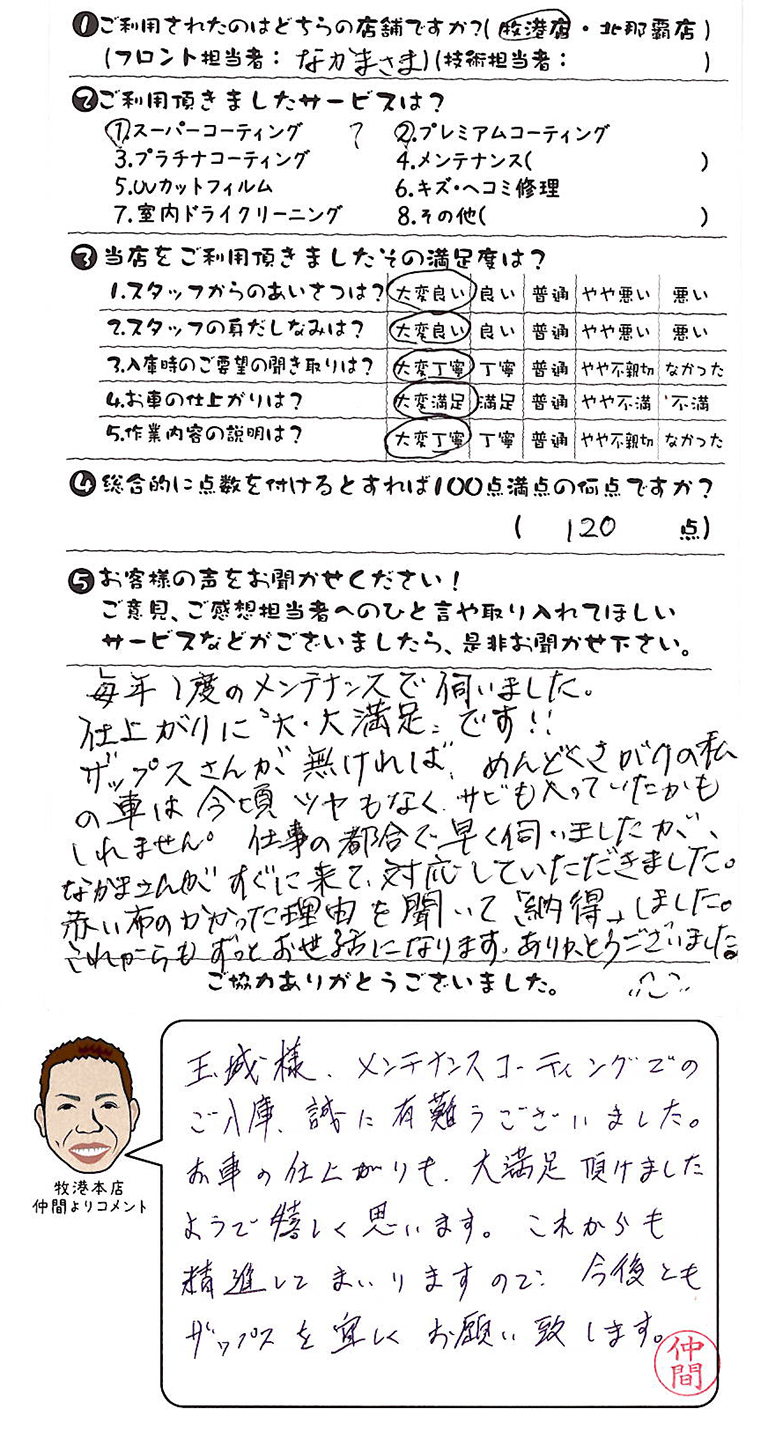 ❶ご利用されたのはどちらの店舗ですか?(牧港店・北那覇店)
(フロント担当者:なかまさま)(技術担当者: )
❷ご利用頂きましたサービスは?
1.スーパーコーティング ? 2.プレミアムコーティング
3.プラチナコーティング 4.メンテナンス( )
5.UVカットフィルム 6.キズ・ヘコミ修理
7.室内ドライクリーニング 8.その他( )
❸当店をご利用頂きましたその満足度は?
1.スタッフからのあいさつは? 大変良い 良い 普通 やや悪い 悪い
2.スタッフの身だしなみは? 大変良い 良い 普通 やや悪い 悪い
3.入庫時のご要望の聞き取りは? 大変丁寧 丁寧 普通 やや不親切 なかった
4.お車の仕上がりは? 大変満足 満足 普通 やや不満 不満
5.作業内容の説明は? 大変丁寧 丁寧 普通 やや不親切 なかった
❹総合的に点数を付けるとすれば100点満点の何点ですか?
( 120 点)
❺お客様の声をお聞かせください!
ご意見、ご感想担当者へのひと言や取り入れてほしい
サービスなどがございましたら、是非お聞かせ下さい。
毎年1度のメンテナンスで伺いました。
仕上がりに「大・大満足」です!!
ザップスさんが無ければ、めんどくさがりの私
の車は今頃ツヤもなく、サビも入っていたかも
しれません。仕事の都合で早く伺いましたが、
なかまさんがすぐに来て、対応していただきました。
赤い布のかかった理由を聞いて「納得」しました。
これからもずっとお世話になります。ありがとうございました。
ご協力ありがとうございました。
玉城様、メンテナンスコーティングでの
ご入庫、誠に有難うございました。
お車の仕上がりも、大満足頂けました
ようで嬉しく思います。これからも
精進してまいりますので、今後とも
ザップスを宜しくお願い致します。
仲間
牧港本店
仲間よりコメント